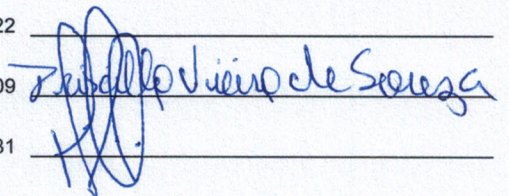 22
09 Priscilla Vieira de Souza
31